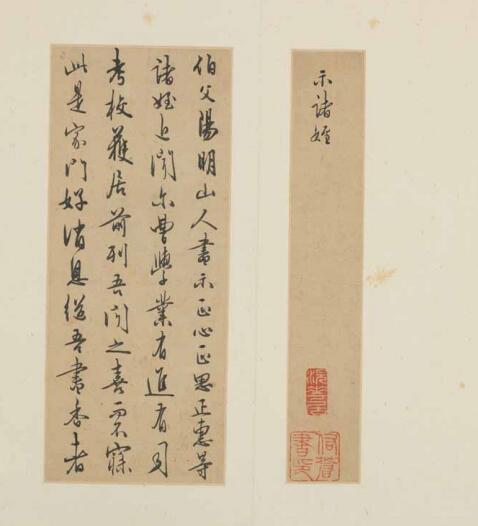 示諸姪
伯父陽明山人書示正心正思正惠等
諸姪近聞尔曹學業有進有司
考校獲居前列吾聞之喜而不寐
此是家門好消息繼吾書香者